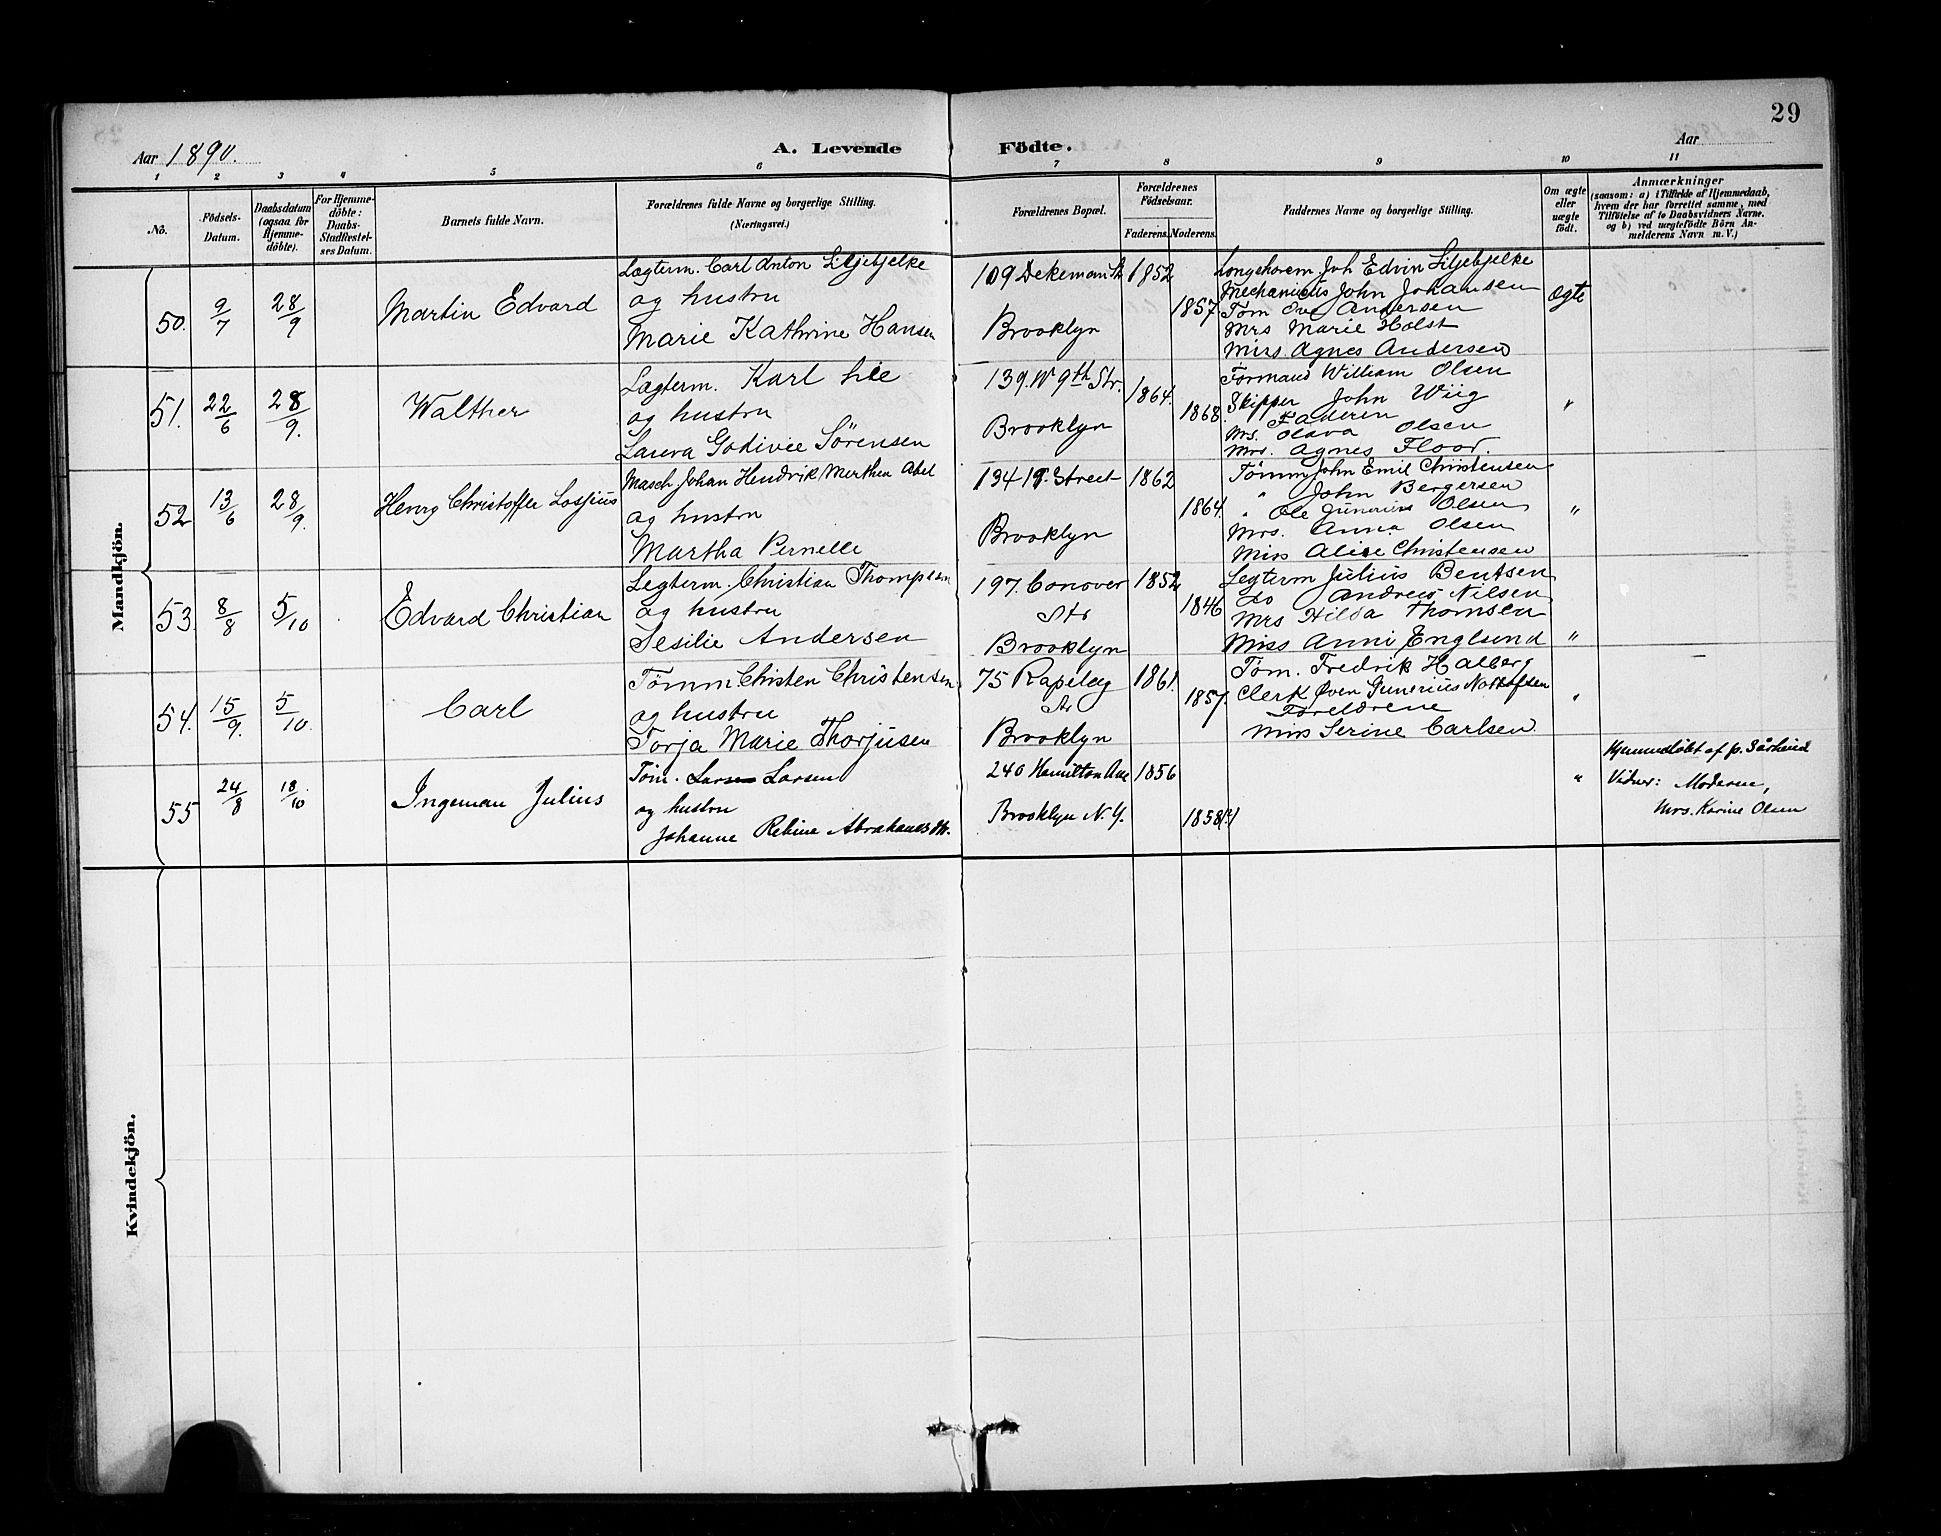 29
Aar 1890.
A. Levende Födte.
Aar
1 2 3 4 5 6 7 8 9 10 11
No.
Födsels-Datum.
Daabsdatum (ogsaa for Hjemme-döbte).
For Hjemme-döbte: Daabs-Stadfæstel-ses Datum.
Barnets fulde Navn.
Forældrenes fulde Navne og borgerlige Stilling. (Næringsvei.)
Forældrenes Bopæl.
Forældrenes Födselsaar.
Faderens. Moderens.
Faddernes Navne og borgerlige Stilling.
Om ægte eller uægte födt.
Anmærkninger
(saasom: a) i Tilfælde af Hjemmedaab, hvem der har forrettet samme, med Tilföielse af to Daabsvidners Navne. og b) ved uægtefödte Börn An-melderens Navn m. V.)
Mandkjön.
50. 9/7 28/9 Martin Edvard
Lægterm. Carl Anton Liljebjelke
og hustru
Marie Kathrine Hansen
109 Dekeman St
Brooklyn
1852
1857
Longshorem. Joh Edvin Liljebjelke
Mechanicus John Johansen
Töm Andersen
Mrs Marie Holst
Miss. Agnes Andersen
ægte
51. 22/6 28/9. Walther
Lægterm. Karl
og hustru
Laura Godivie Sørensen
139. W 9th Str.
Brooklyn
1864.
1868.
Formand William Olsen
Skipper John Wiig
Faderen
Mrs. Olava Olsen
Mrs. Agnes Floor.
"
52 13/6 28/9. Henry Christoffer
Masch. Johan Hendrik Abel
og hustru
Martha Pernelle
134 Street
Brooklyn
1862
1864.
Tömm John Emil Christensen
" John Bergersen
" Ole Olsen
Mrs. Anna Olsen
Miss Alise Christensen
"
53. 8/8 5/10 Edvard Christian
Legterm. Christian Thompsen
og hustru
Sesilie Andersen
197. Conover
Str
Brooklyn
1852
1846
Legterm Julius Bentsen
Do Andreas Nilsen
Mrs Hilda Thomsen
Miss Anni Englund
"
54. 15/9. 5/10. Carl
Tømm. Christen Christensen
og hustru
Torja Marie Thorjusen
75 Rapeley
Str
Brooklyn
1861.
1857.
Töm. Fredrik Halberg
Clerk Øven Gunerius
Foreldrene
Miss Serine Carlsen
"
55 24/8 18/10 Ingeman Julius
Töm. Larsen
og hustru
Johanne Rebine
240 Hamilton Ave
Brooklyn N. Y.
1856
1858(?)
"
Hjemmedöbt af p. Sårheim
Vidner: Moderen,
Mrs. Karine Olsen
Kvindekjön.